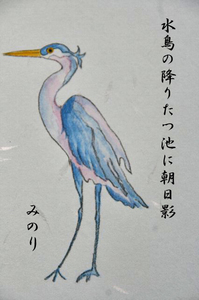 水鳥の降りたつ池に朝日影
みのり